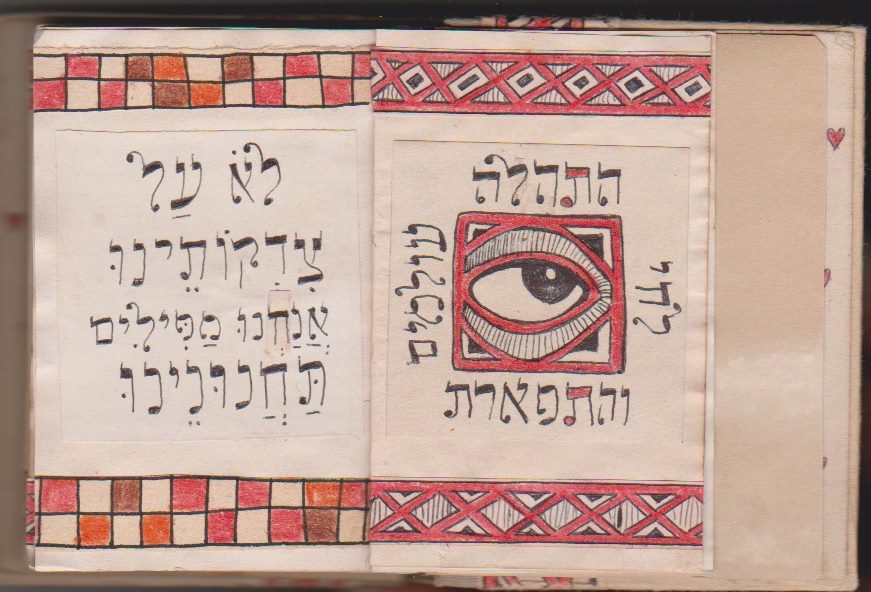 התהלה
והתפארת
לחי
עולמים
לֹא עַל
צִדְקוֹתֵינוּ
אֲנַחְנוּ מַפִּילִים
תַּחֲנוּנֵינוּ